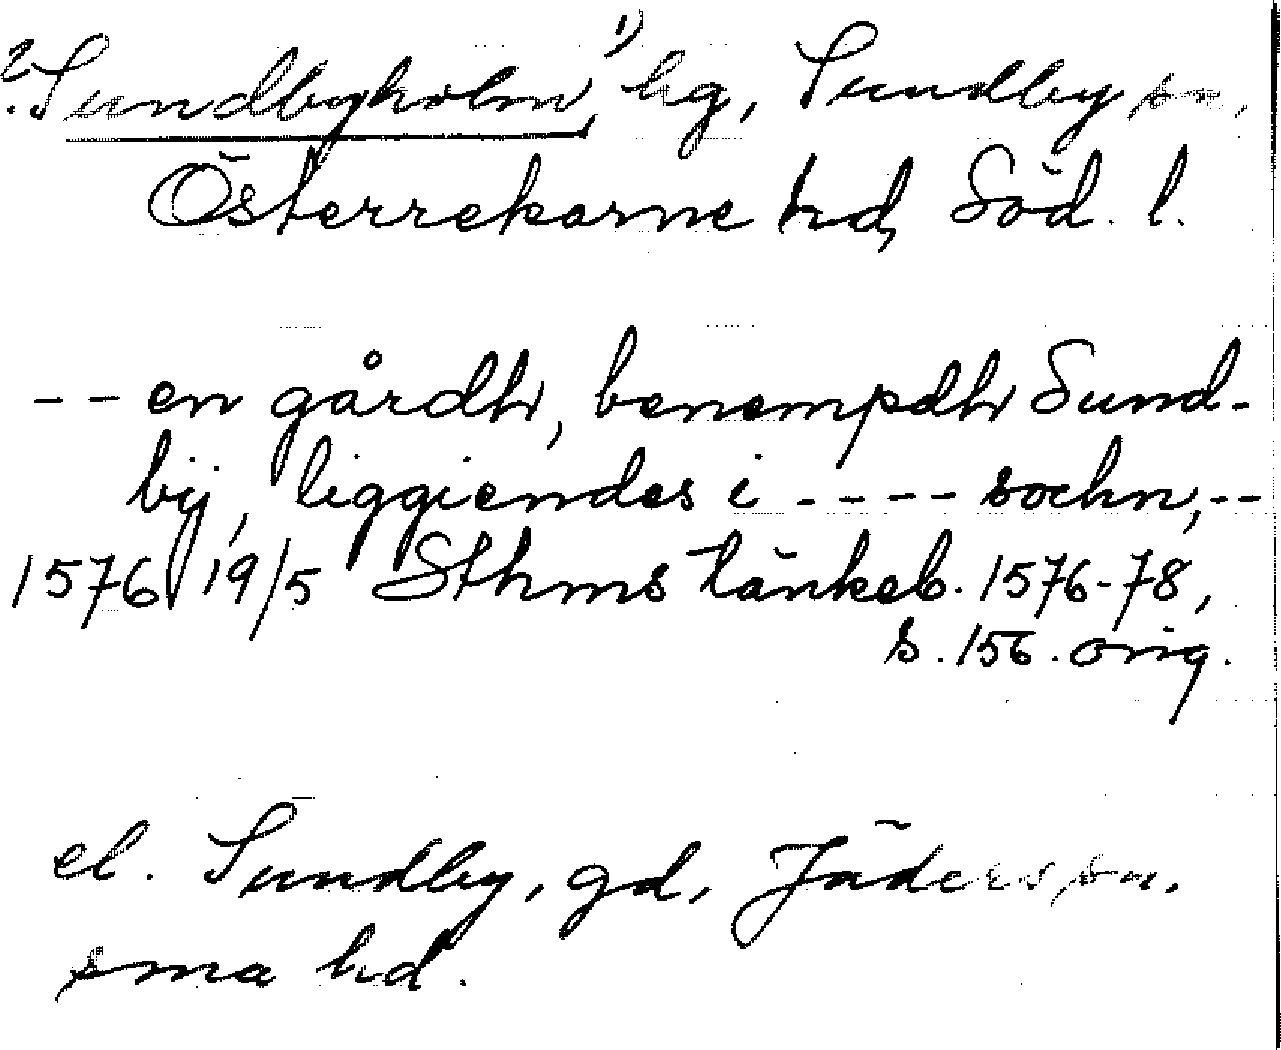 ?Sundbyholm,¹⁾ hg, Sundby sn,
Österrekarne hd, Söd. l.
-- en gårdh, benempdh Sund-
bij, liggiendes i ---- sochn, --
1576 19/5 Sthms tänkeb. 1576-78,
s. 156. orig.
el. Sundby, gd, Jäders sn.
sma hd.